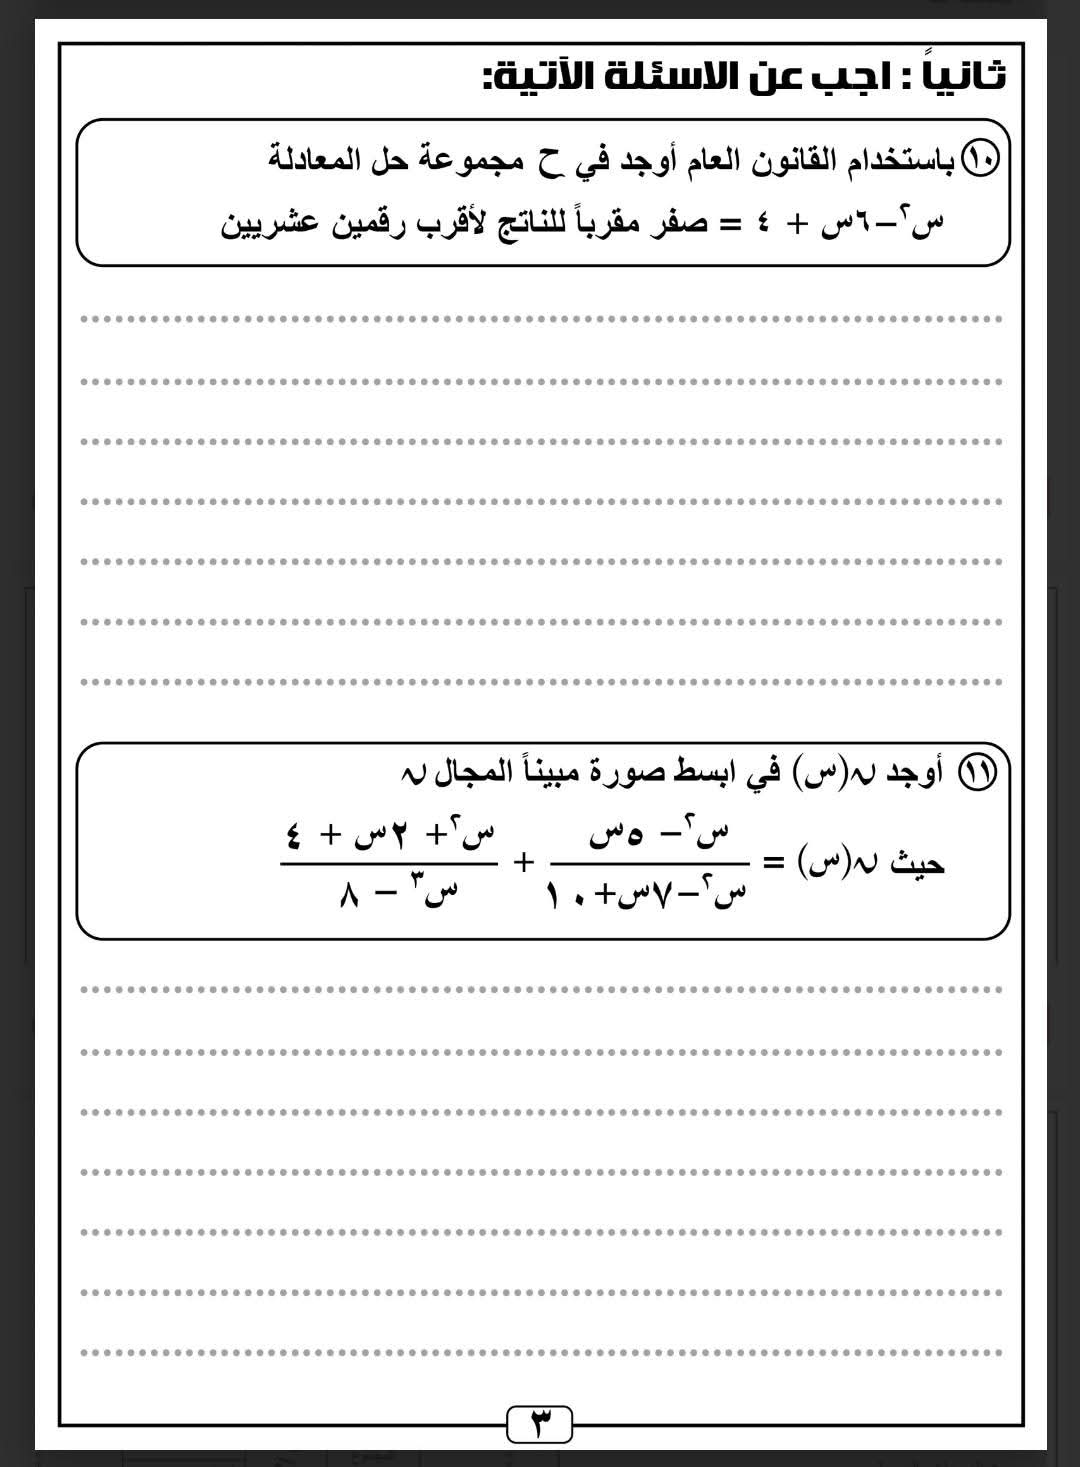 ثانياً : اجب عن الاسئلة الآتية:
١٠ باستخدام القانون العام أوجد في ح مجموعة حل المعادلة
س٢ – ٦س + ٤ = صفر مقرباً للناتج لأقرب رقمين عشريين
١١ أوجد ن(س) في ابسط صورة مبيناً المجال ن
س٢ – ٥س س٢ + ٢س + ٤
حيث ن(س) = +
س٢ – ٧س + ١٠ س٣ – ٨
٣